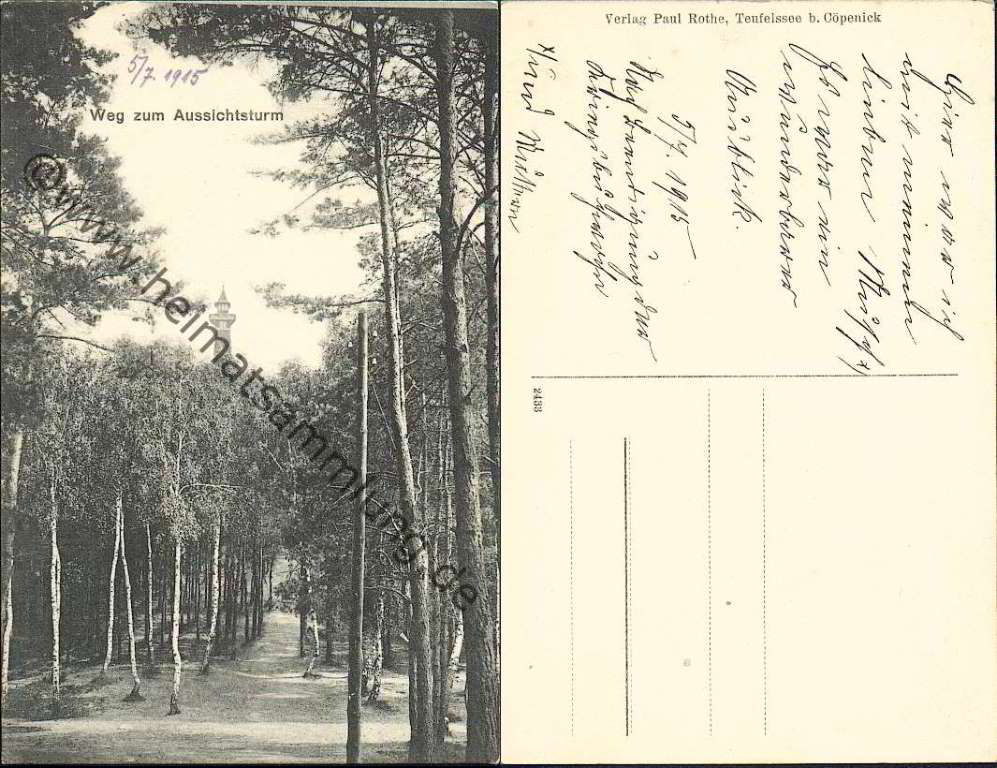 5/7 1915
Weg zum Aussichtsturm
©www.heimatsammlung.de
Verlag Paul Rothe, Teufelssee b. Cöpenick
Hier war ich
mit meinem
lieben x)
Es war ein
wunderbarer
Ausblick.
5/7. 1915
x) und
2433